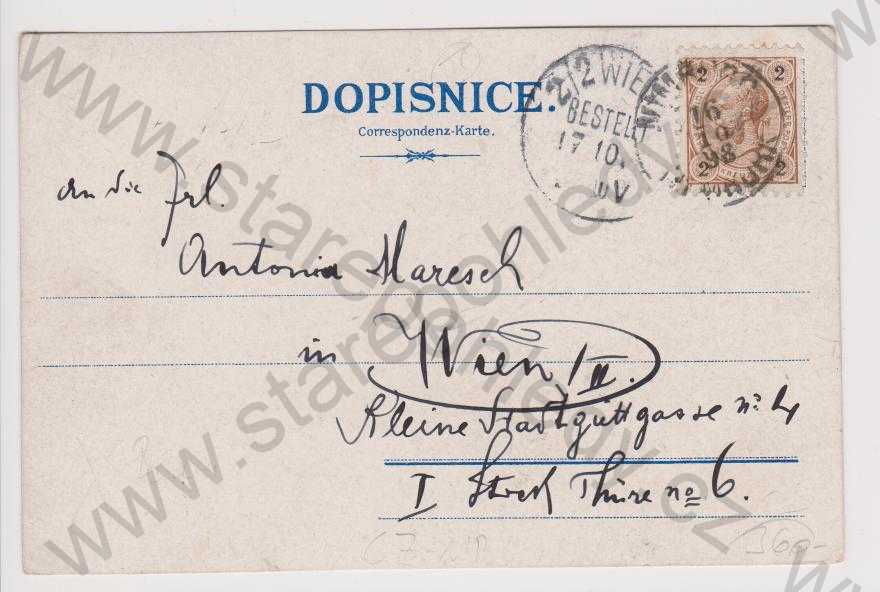 DOPISNICE.
Correspondenz-Karte.
2/2 WIEN
BESTELLT
17 10.
IV
16
98
2 2
2 2
An die Frl.
Antonia Maresch
in Wien /II.
Kleine Stadtgutgasse No 4
I Stock Thüre No 6.
360-
www.starepohledy.cz